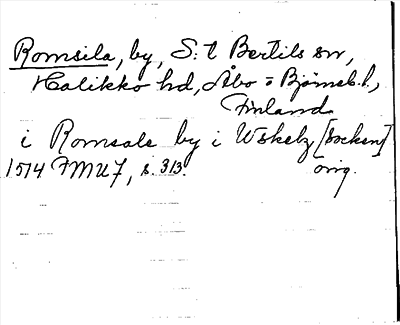 Romsila, by, S:t Bertils sn,
Halikko hd, Åbo o Björneb. l.,
Finland
i Romsale by i Wskelz [socken]
1514 FMU 7, s. 313. orig.